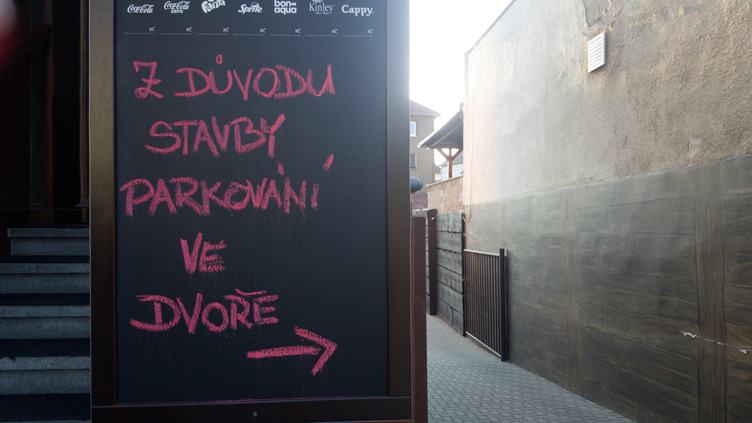 Coca-Cola Coca-Cola zero Fanta Sprite bon aqua Kinley Cappy
Kč Kč Kč Kč Kč Kč Kč
Z DŮVODU
STAVBY
PARKOVÁNÍ
VE
DVOŘE